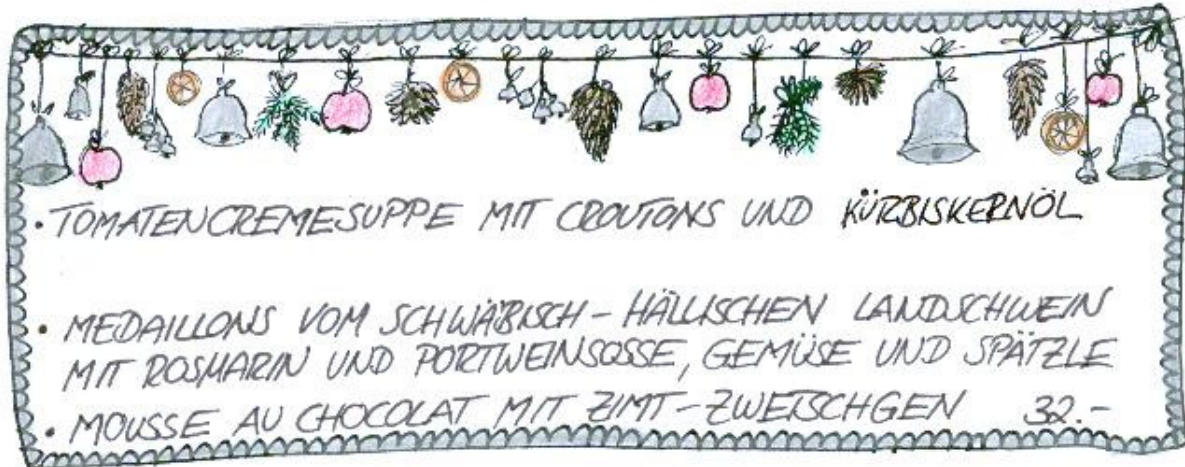 • TOMATENCREMESUPPE MIT CROUTONS UND KÜRBISKERNÖL
• MEDAILLONS VOM SCHWÄBISCH-HÄLLISCHEN LANDSCHWEIN
MIT ROSMARIN UND PORTWEINSOSSE, GEMÜSE UND SPÄTZLE
• MOUSSE AU CHOCOLAT MIT ZIMT-ZWETSCHGEN 32.-